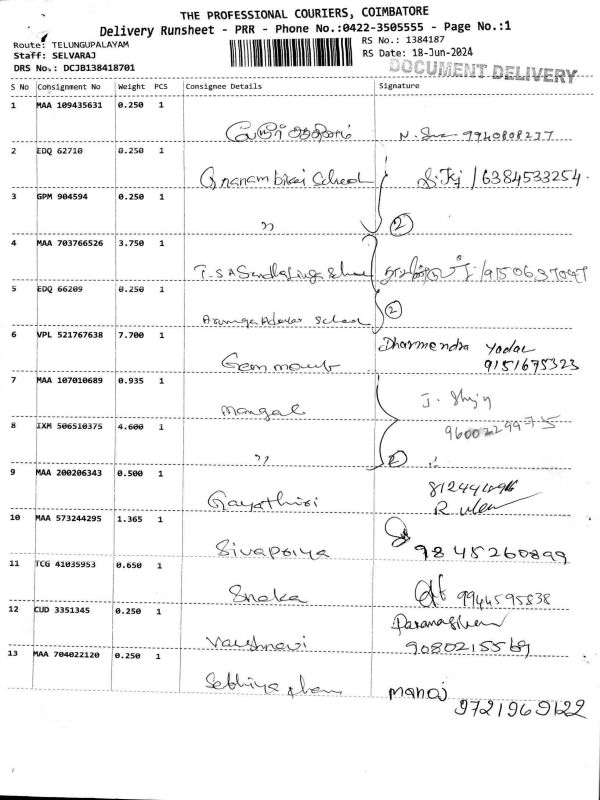 THE PROFESSIONAL COURIERS, COIMBATORE
Delivery Runsheet - PRR - Phone No.:0422-3505555 - Page No.:1
Route: TELUNGUPALAYAM
RS No.: 1384187
Staff: SELVARAJ
RS Date: 18-Jun-2024
DRS No.: DCJB138418701
DOCUMENT DELIVERY
S No Consignment No Weight PCS Consignee Details Signature
1 MAA 109435631 0.250 1
9940808237
2 EDQ 62710 0.250 1
Gnanambikai School 6384533254
3 GPM 904594 0.250 1
" 2
4 MAA 703766526 3.750 1
T-S A
5 EDQ 66209 0.250 1
School 2
6 VPL 521767638 7.700 1
Dharmendra Yadav
Gem 9151675323
7 MAA 107010689 0.935 1
Mangal
8 IXM 506510375 4.600 1
" 2
9 MAA 200206343 0.500 1
Gayathiri
10 MAA 573244295 1.365 1
Sivapriya 9845260899
11 TCG 41035953 0.650 1
Sneka 9944595838
12 CUD 3351345 0.250 1
Vaishnavi 9080215569
13 MAA 704022120 0.250 1
Manoj
9721969122